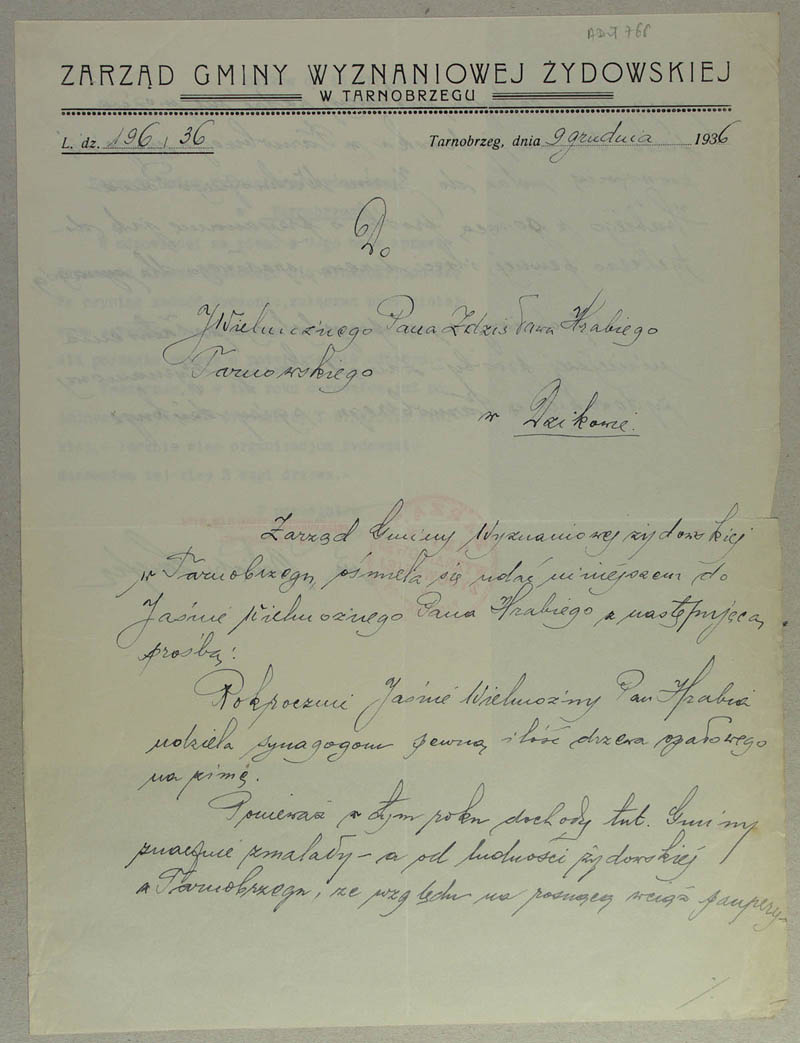 ADzT 766
ZARZĄD GMINY WYZNANIOWEJ ŻYDOWSKIEJ
W TARNOBRZEGU
L. dz. 196 / 36 Tarnobrzeg, dnia 9 grudnia 1936
Do
JWielmożnego Pana Zdzisława Hrabiego
Tarnowskiego
w Dzikowie.
Zarząd Gminy Wyznaniowej żydowskiej
w Tarnobrzegu, ośmiela się udać niniejszem do
Jaśnie Wielmożnego Pana Hrabiego z następującą
prośbą:
Rokrocznie Jaśnie Wielmożny Pan Hrabia
udziela synagogom pewną ilość drzewa opałowego
na zimę.
Ponieważ w tym roku dochody tut. Gminy
znacznie zmalały - a od ludności żydowskiej
z Tarnobrzega, ze względu na rosnącą wciąż paupery-
./.